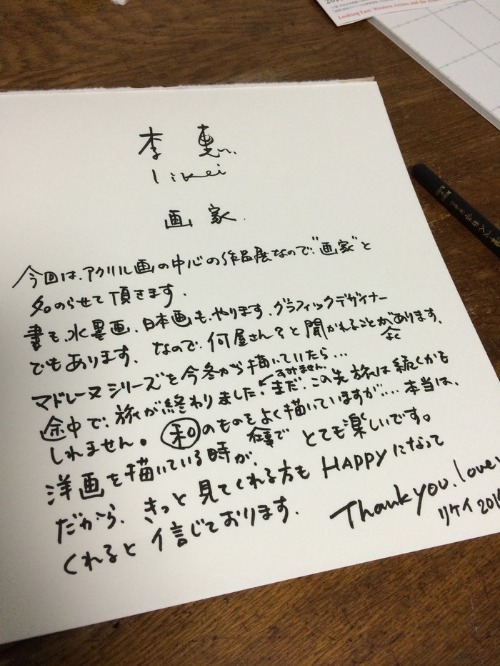 李 惠
likei
画家.
今回は、アクリル画の中心の作品展なので、“画家”と
名のらせて頂きます.
書も、水墨画、日本画も、やります. グラフィックデザイナー
でもあります. なので、何屋さん?と聞かれることがよくあります.
マドレーヌシリーズを今冬から描いていたら…
途中で、旅が終わりました. すみません。まだ、この先旅は続くかも
しれません。和のものをよく描いていますが…. 本当は、
洋画を描いている時が、とても楽しいです。
だから、きっと見てくれる方も HAPPYになって
くれると信じております.
Thank you. love.
リケイ 201